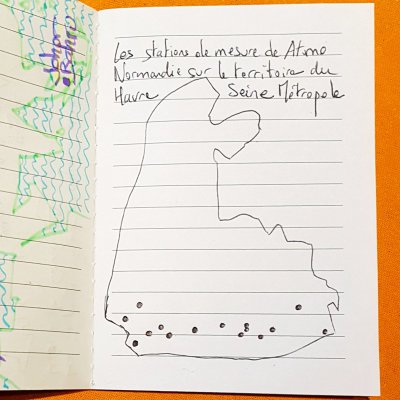 Les stations de mesure de Atmo
Normandie sur le territoire du
Havre Seine Métropole
Johor
Bahru